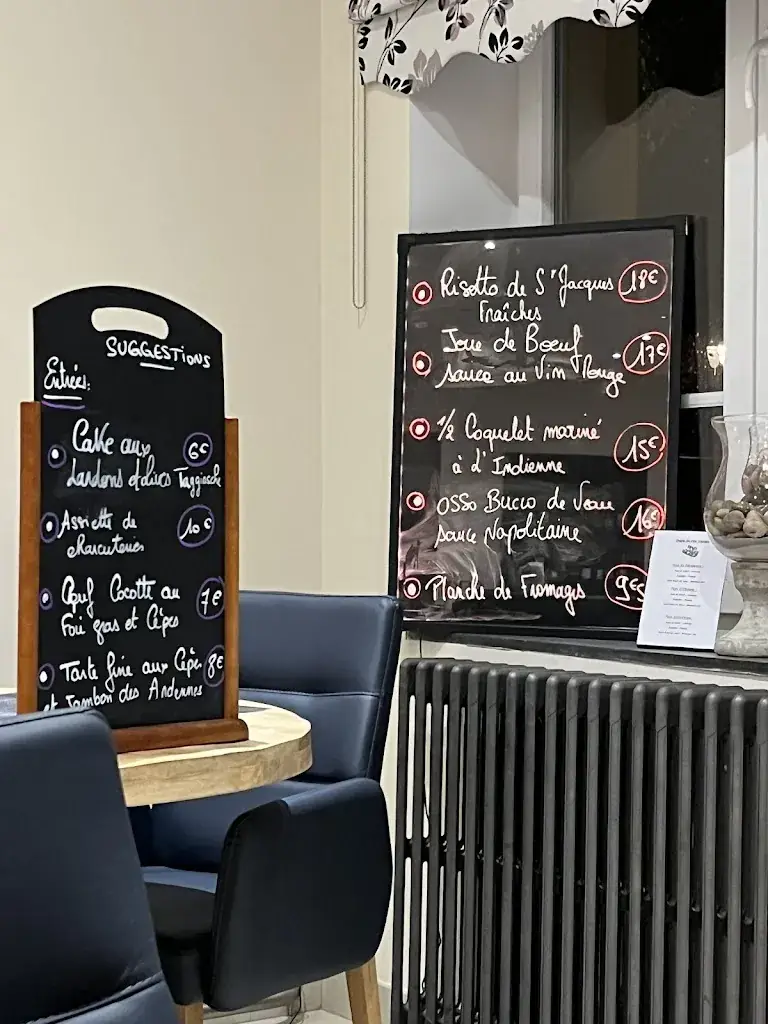 SUGGESTIONS
Entrées:
Cake aux 6€
lardons et olives Taggiasche
Assiette de 10€
charcuteries
Oeuf Cocotte au 7€
Foie gras et Cèpes
Tarte fine aux Cèpes 8€
et Jambon des Ardennes
Risotto de St Jacques 18€
Fraîches
Joue de Boeuf 17€
sauce au Vin Rouge
1/2 Coquelet mariné 15€
à d'Indienne
OSSO Bucco de Veau 16€
sauce Napolitaine
Planche de Fromages 9€5